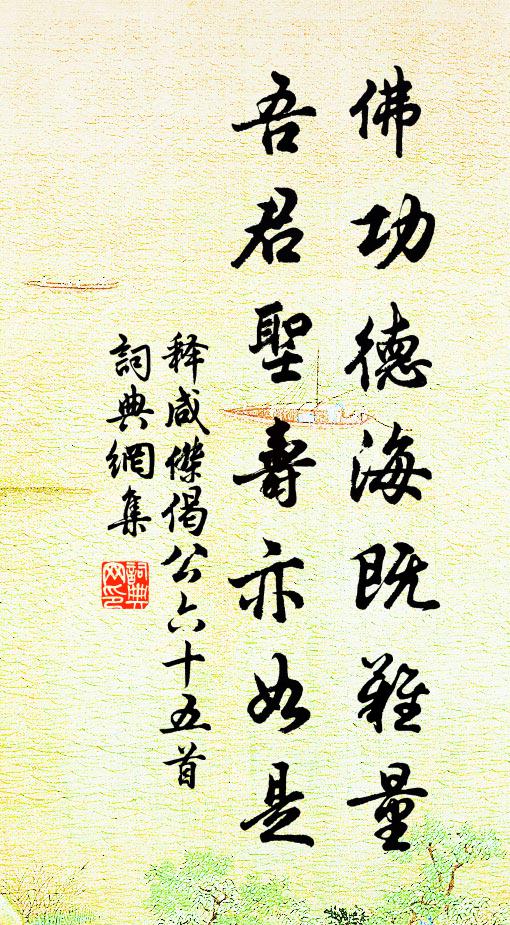 佛功德海既難量
吾君聖壽亦如是
释咸傑偈公六十五首
詞典網集
詞典
网印